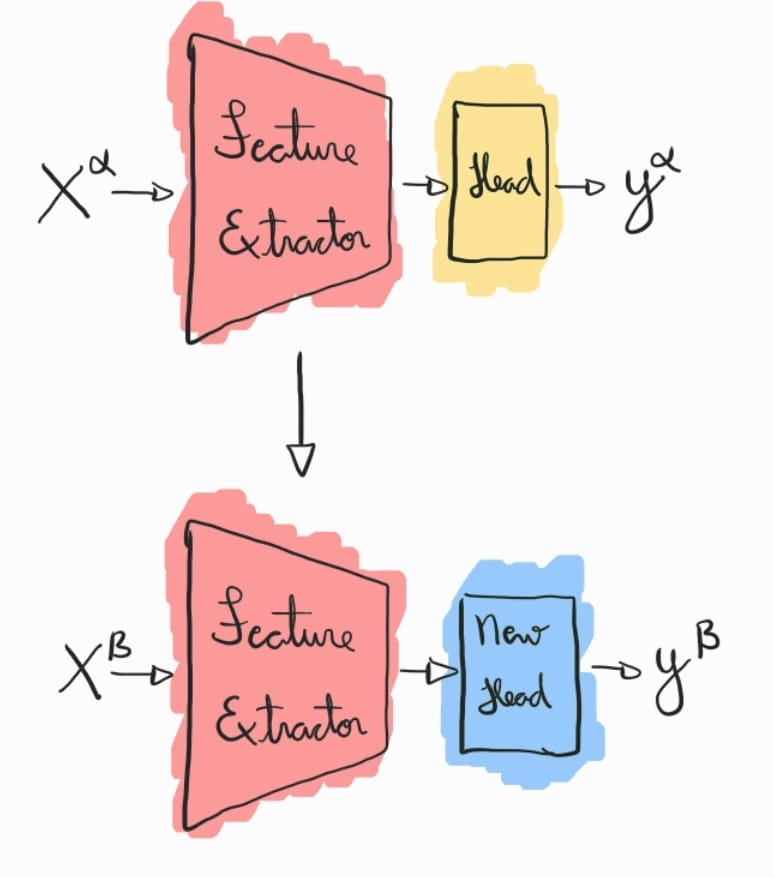 X^α
Feature
Extractor
Head
y^α
X^β
Feature
Extractor
New
Head
y^β